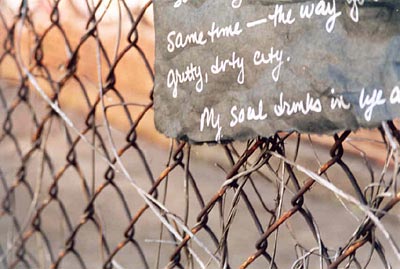 same time — the way
gritty, dirty city.
My soul drinks in